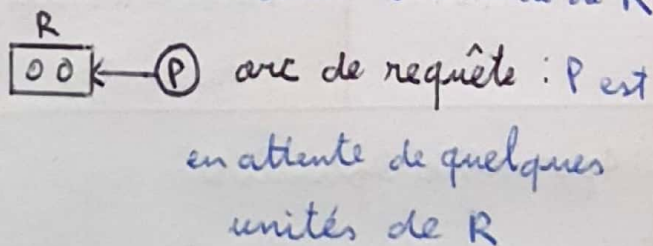 de R
R
P arc de requête : P est
en attente de quelques
unités de R